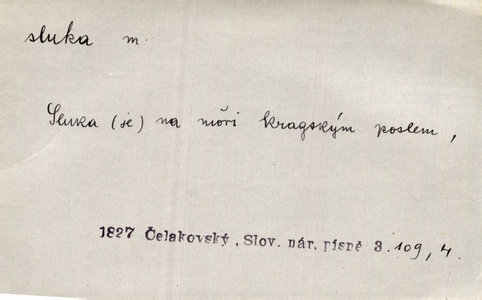 sluka m.
Sluka (je) na moři kragským poslem,
1827 Čelakovský, Slov. nár. písně 3.109, 4.